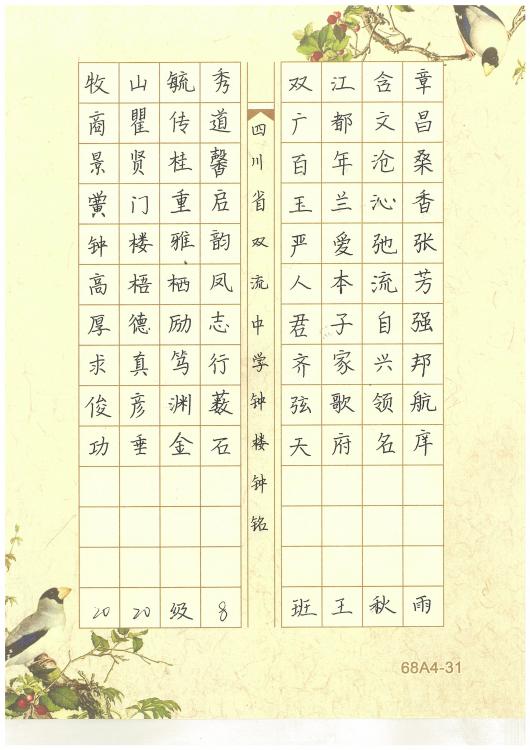 四川省双流中学钟楼钟铭
牧山毓秀 双江含章
商瞿传道 广都文昌
景贤桂馨 百年沧桑
黉门重启 玉兰沁香
钟楼雅韵 严爱弛张
高梧栖凤 人本流芳
厚德励志 君子自强
求真笃行 齐家兴邦
俊彦渊薮 弦歌领航
功垂金石 天府名庠
2020级8 班王秋雨
68A4-31